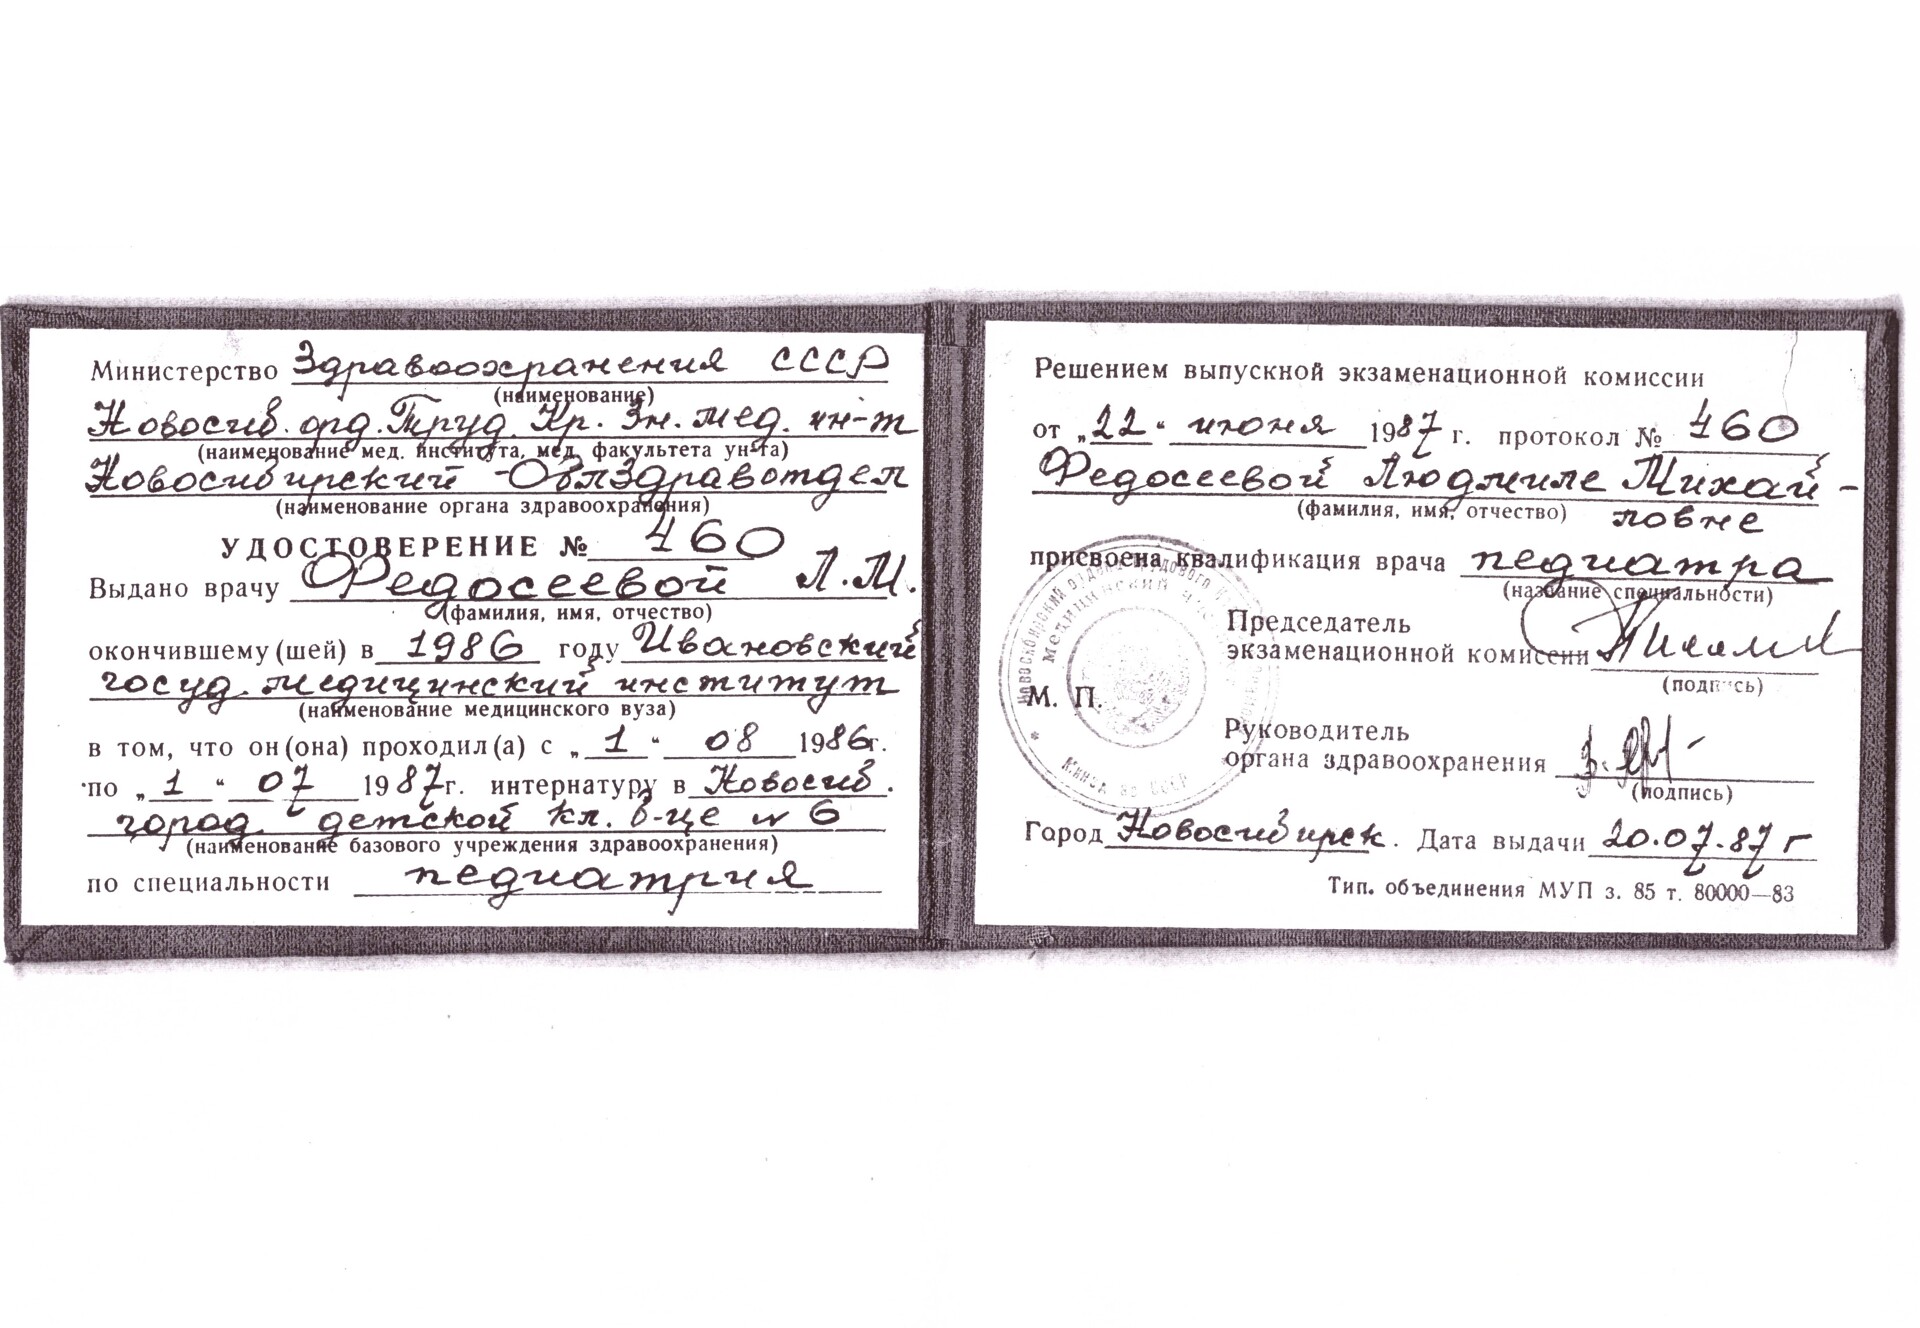 Министерство Здравоохранения СССР
(наименование)
Новосиб. орд. Труд. Кр. Зн. мед. ин-т
(наименование мед. института, мед. факультета ун-та)
Новосибирский Облздравотдел
(наименование органа здравоохранения)
УДОСТОВЕРЕНИЕ № 460
Выдано врачу Федосеевой Л.М.
(фамилия, имя, отчество)
окончившему (шей) в 1986 году Ивановский
госуд. медицинский институт
(наименование медицинского вуза)
в том, что он (она) проходил (а) с „1“ 08 1986г.
по „1“ 07 1987г. интернатуру в Новосиб.
город. детской кл. б-це № 6
(наименование базового учреждения здравоохранения)
по специальности педиатрия
Решением выпускной экзаменационной комиссии
от „22“ июня 1987 г. протокол № 460
Федосеевой Людмиле Михай-
(фамилия, имя, отчество) ловне
присвоена квалификация врача педиатра
(название специальности)
Председатель
экзаменационной комиссии
(подпись)
М. П.
Руководитель
органа здравоохранения
(подпись)
Город Новосибирск. Дата выдачи 20.07.87 г
Тип. объединения МУП з. 85 т. 80000—83
Новосибирский
медицинский